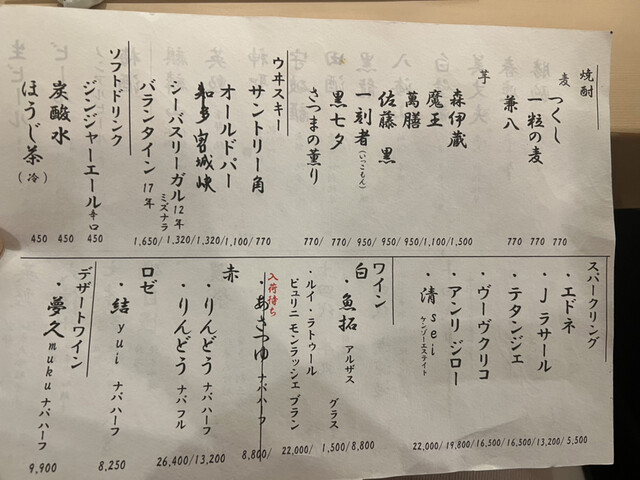 焼酎
麦
つくし 770
一粒の麦 770
兼八 770
芋
森伊蔵 1,500/
魔王 1,100/
萬膳 950/
佐藤 黒 950/
一刻者（いっこもん） 950/
黒七夕 770/
さつまの薫り 770/
ウヰスキー
サントリー角 770
オールドパー 1,100/
知多 宮城峡 1,320/
シーバスリーガル 12年 ミズナラ 1,320/
バランタイン 17年 1,650/
ソフトドリンク
ジンジャーエール 辛口 450
炭酸水 450
ほうじ茶（冷） 450
スパークリング
・エドネ 5,500
・J ラサール 13,200/
・テタンジェ 16,500/
・ヴーヴクリコ 16,500/
・アンリ ジロー 19,800/
・清 sei ケンゾーエステイト 22,000/
ワイン
白
・魚拓 アルザス グラス 1,500/8,800
・ルイ・ラトゥール ピュリニ モンラッシェ ブラン 22,000/
入荷待ち
・あさつゆ ナパハーフ 8,800/
赤
・りんどう ナパハーフ 13,200
・りんどう ナパフル 26,400/
ロゼ
・結 yui ナパハーフ 8,250
デザートワイン
・夢久 muku ナパハーフ 9,900